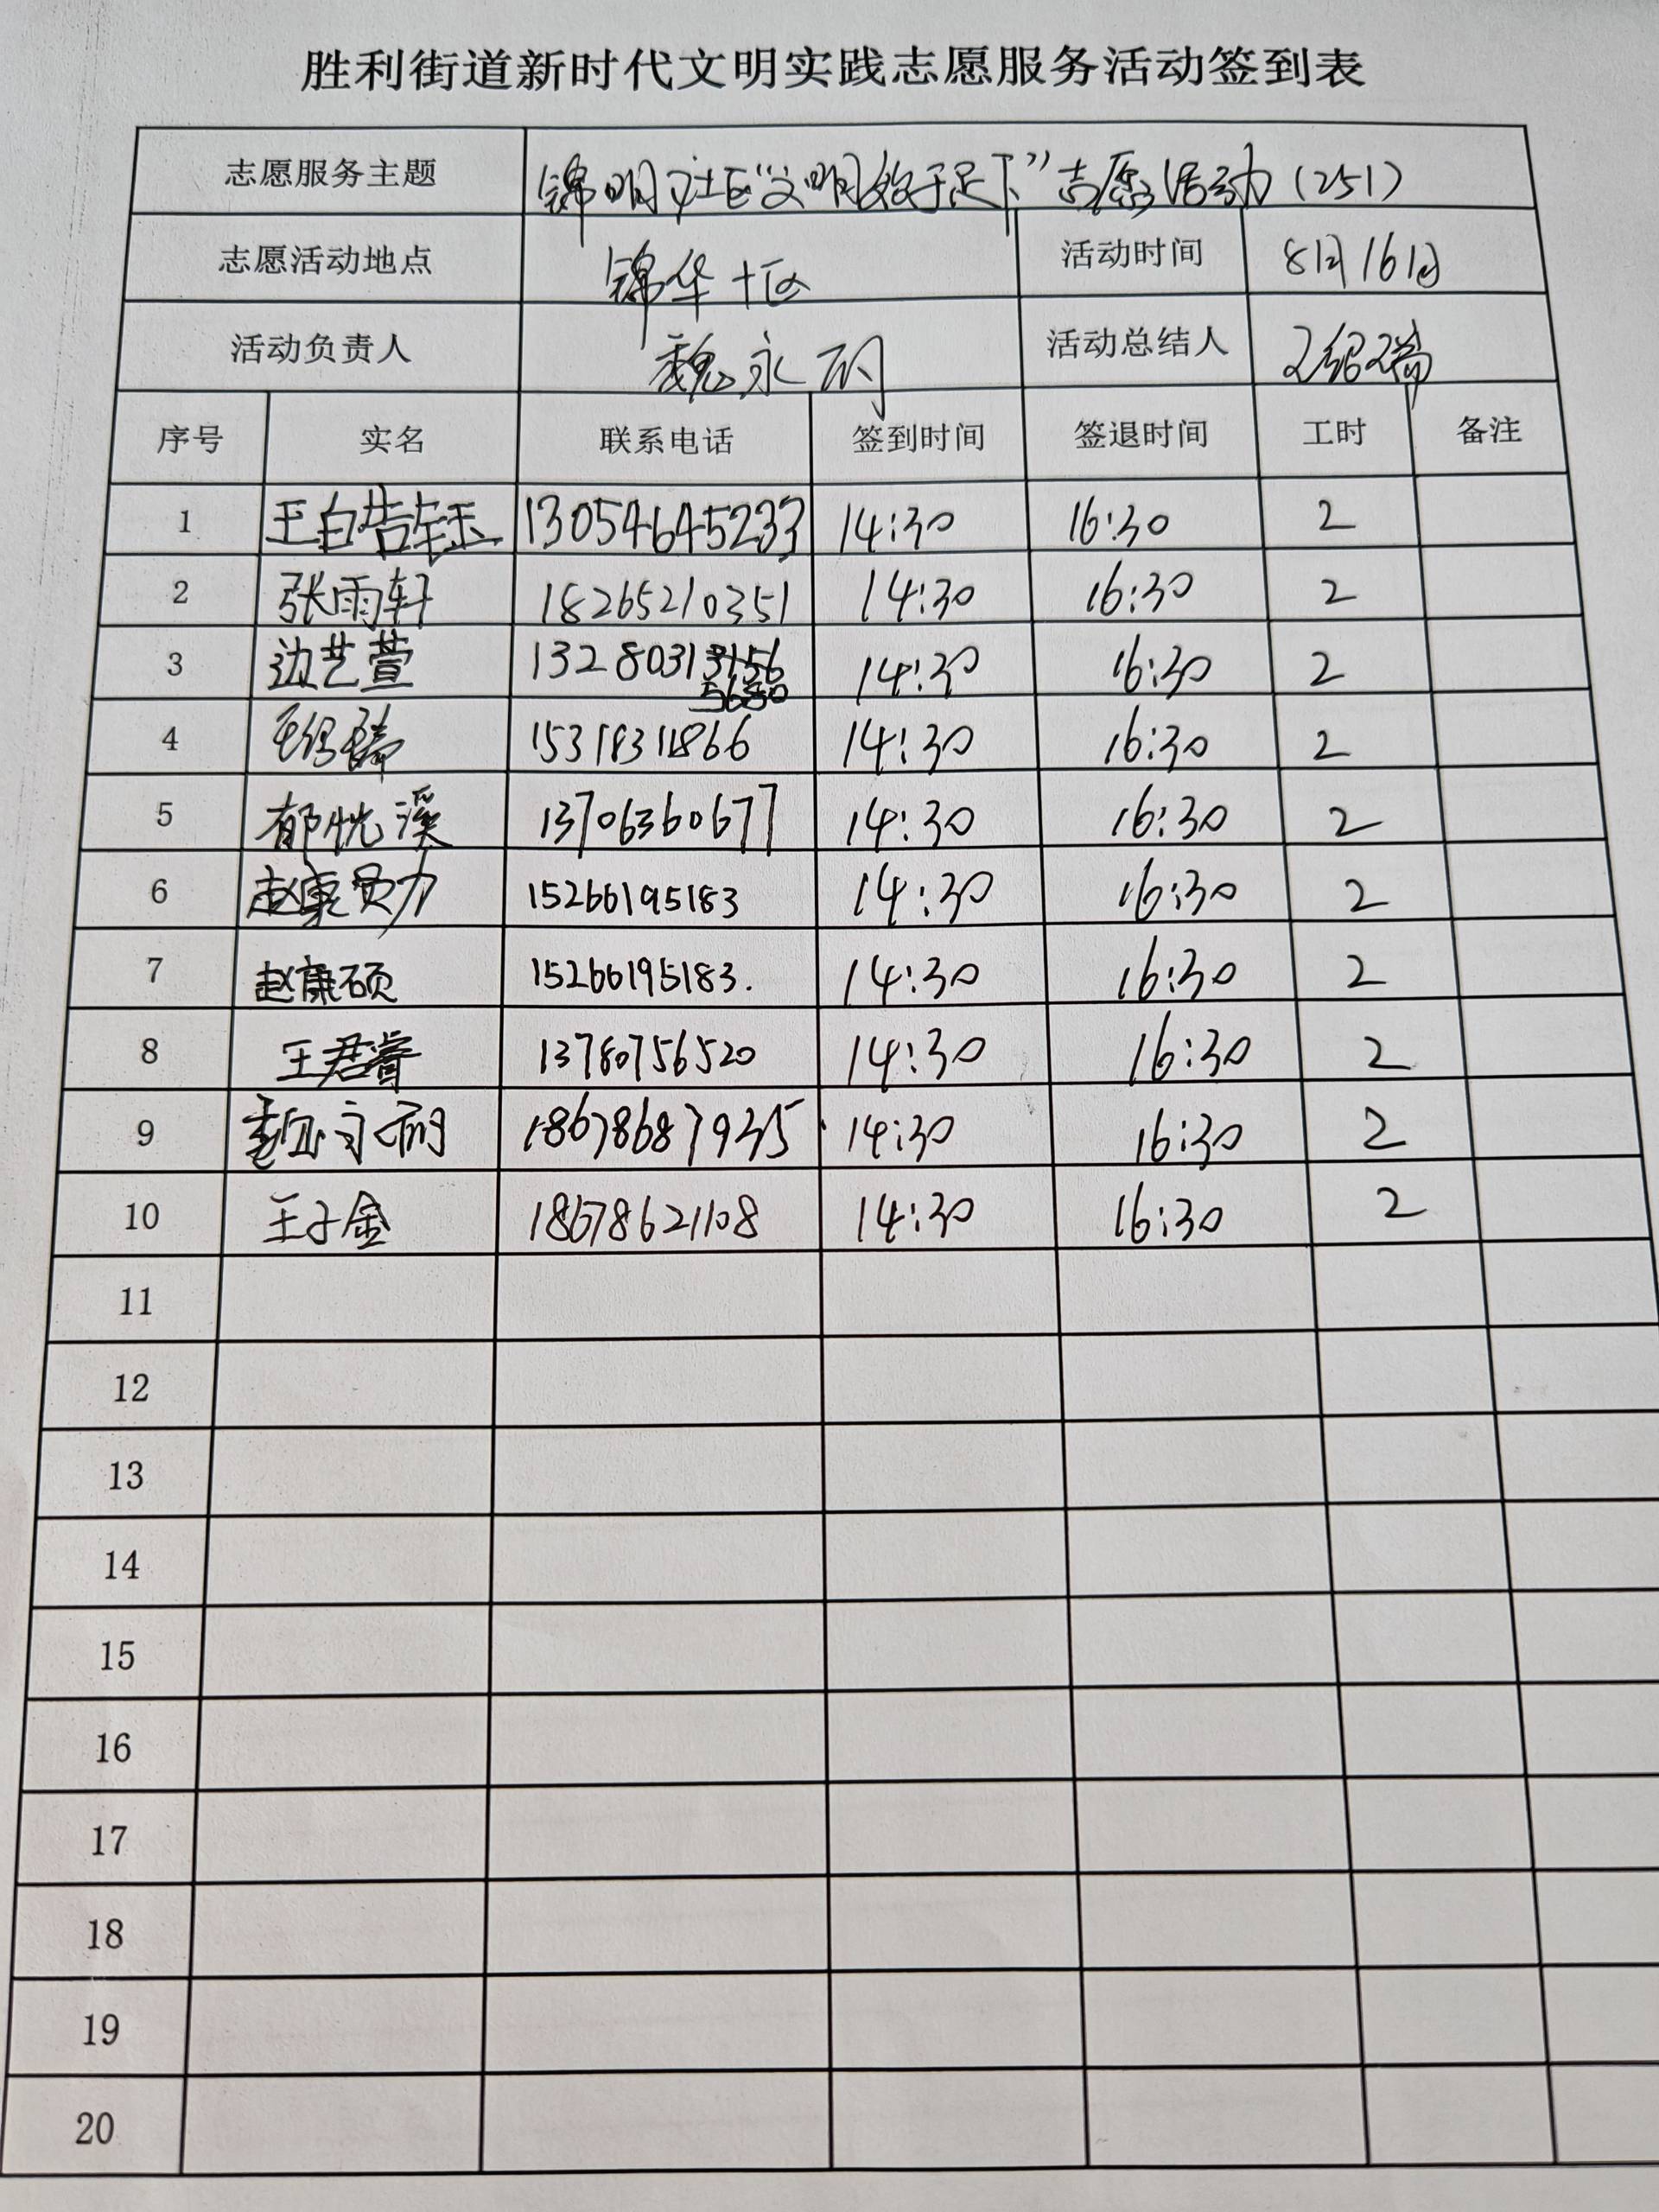 胜利街道新时代文明实践志愿服务活动签到表
志愿服务主题 锦明社区“文明始于足下”志愿活动（251）
志愿活动地点 锦华十区 活动时间 8月16日
活动负责人 魏永 活动总结人 王绍瑞
序号 实名 联系电话 签到时间 签退时间 工时 备注
1 王皓钰 13054645233 14:30 16:30 2
2 张雨轩 18265210351 14:30 16:30 2
3 边艺萱 1328031 5680 14:30 16:30 2
4 王绍瑞 15318311866 14:30 16:30 2
5 郁恍溪 13706360677 14:30 16:30 2
6 赵康勋 15266195183 14:30 16:30 2
7 赵康硕 15266195183. 14:30 16:30 2
8 王君睿 13780756520 14:30 16:30 2
9 魏永 18678687935 14:30 16:30 2
10 王子金 18678621108 14:30 16:30 2
11
12
13
14
15
16
17
18
19
20